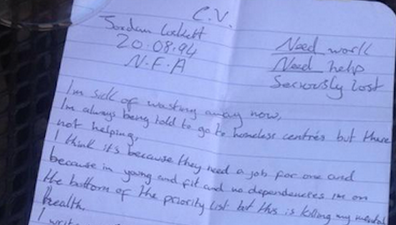 C.V.
Jordan Lockett
20.08.94
N.F.A
Need work
Need help
Seriously lost
I'm sick of wasting away now,
I'm always being told to go to homeless centres but there
not helping,
I think its because they need a job for one and
because im young and fit and no dependencies im on
the bottom of the priority list but this is killing my mental
health.